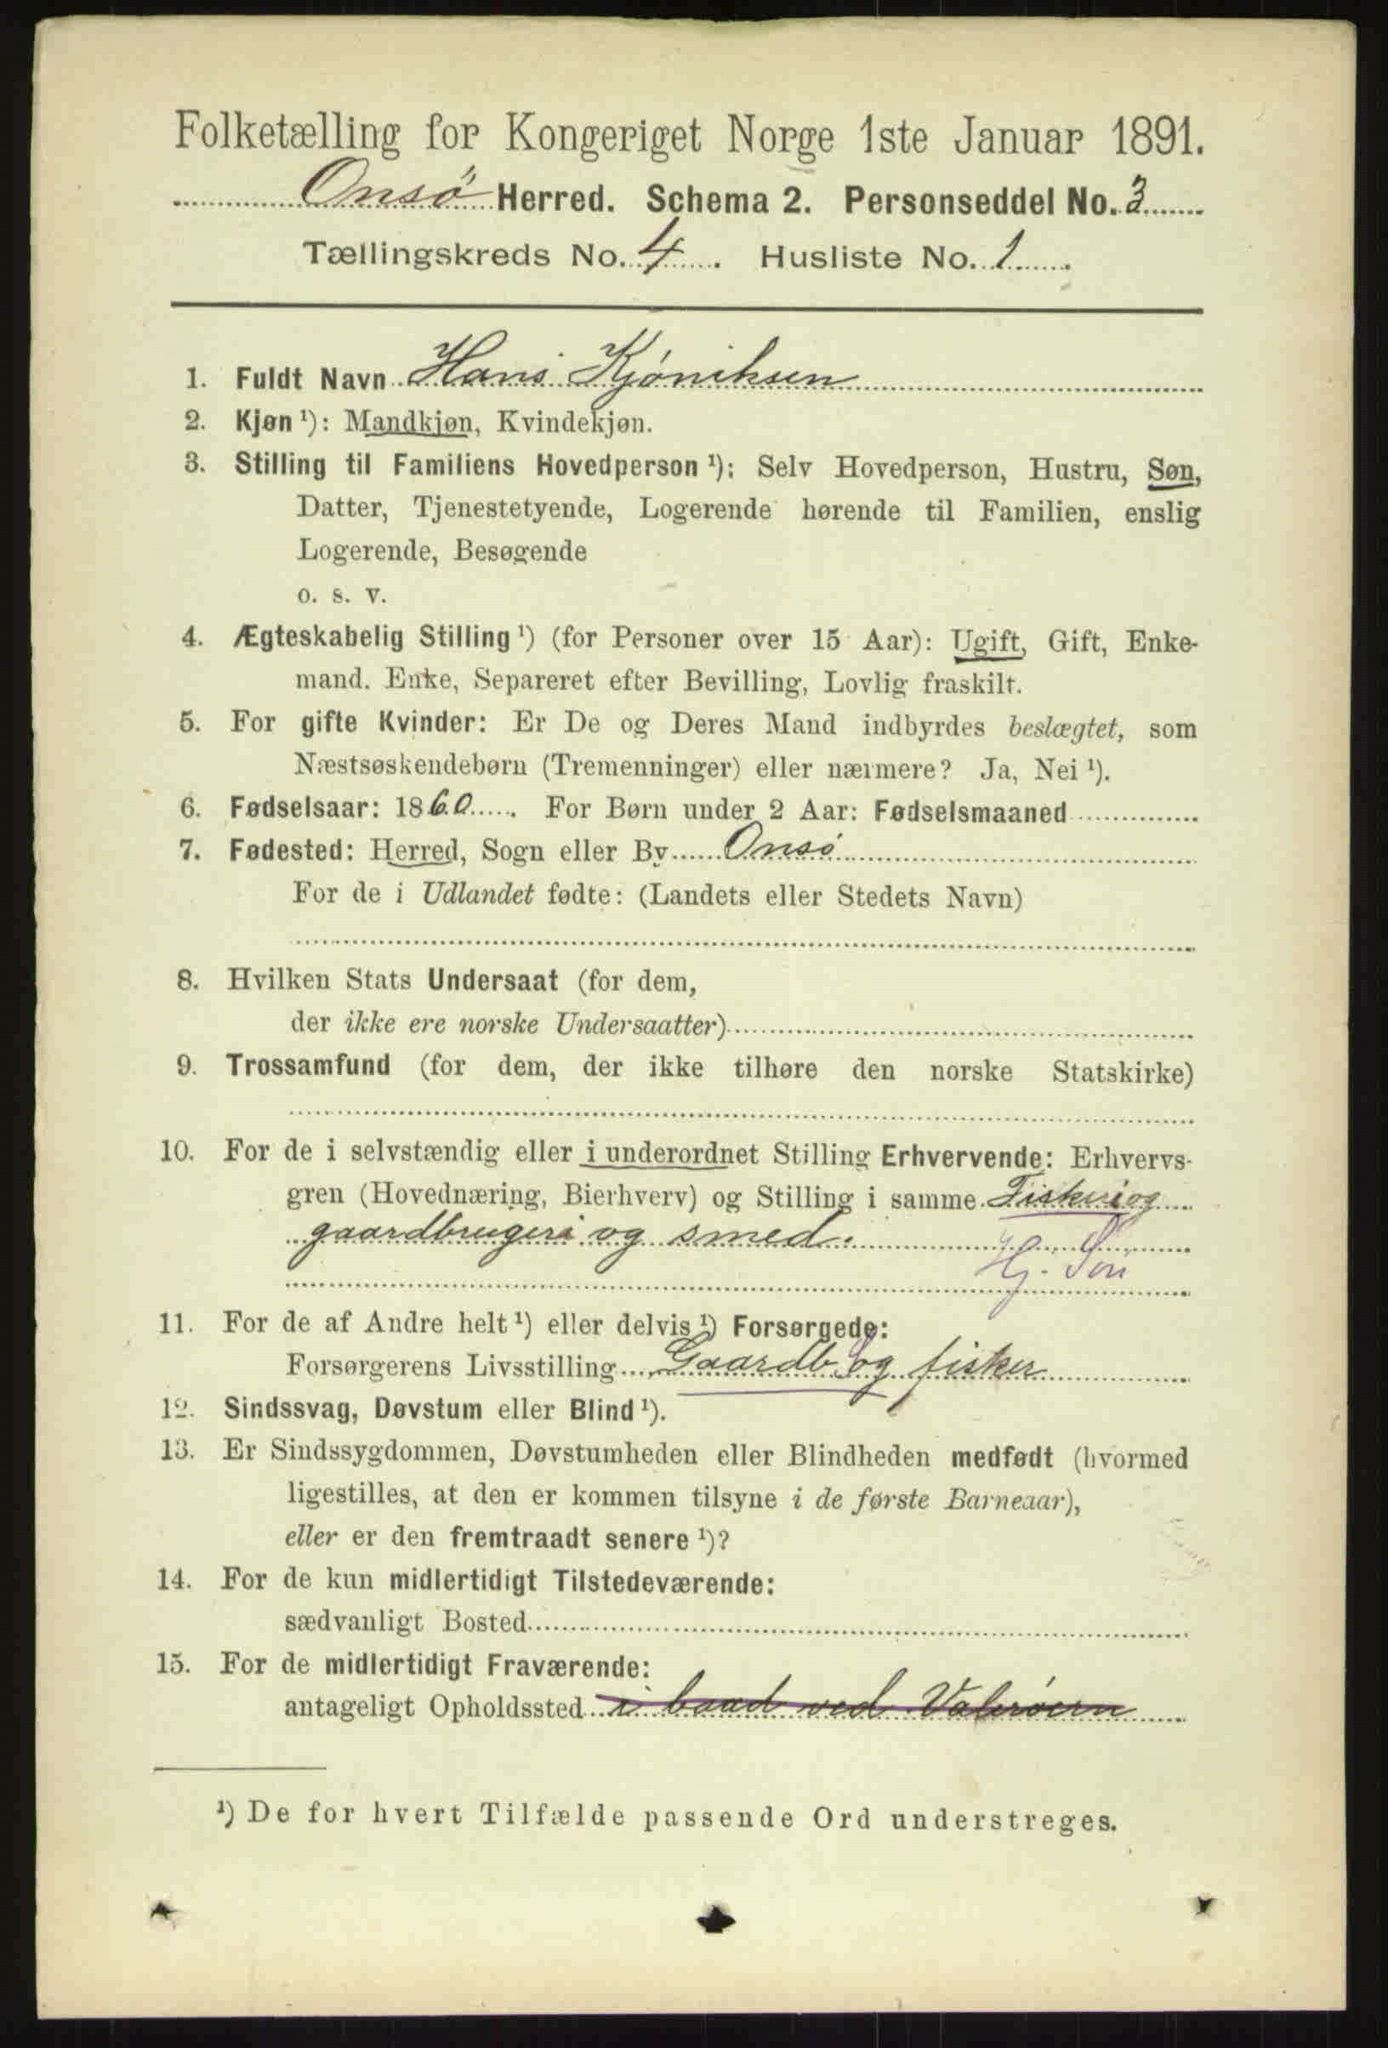 Folketælling for Kongeriget Norge 1ste Januar 1891.
Onsø Herred. Schema 2. Personseddel No. 3
Tællingskreds No. 4. Husliste No. 1.
1. Fuldt Navn Hans Kjøniksen
2. Kjøn ¹): Mandkjøn, Kvindekjøn.
3. Stilling til Familiens Hovedperson ¹): Selv Hovedperson, Hustru, Søn,
Datter, Tjenestetyende, Logerende hørende til Familien, enslig
Logerende, Besøgende
o. s. v.
4. Ægteskabelig Stilling ¹) (for Personer over 15 Aar): Ugift, Gift, Enke-
mand. Enke, Separeret efter Bevilling, Lovlig fraskilt.
5. For gifte Kvinder: Er De og Deres Mand indbyrdes beslægtet, som
Næstsøskendebørn (Tremenninger) eller nærmere? Ja, Nei ¹).
6. Fødselsaar: 1860. For Børn under 2 Aar: Fødselsmaaned
7. Fødested: Herred, Sogn eller By Onsø
For de i Udlandet fødte: (Landets eller Stedets Navn)
8. Hvilken Stats Undersaat (for dem,
der ikke ere norske Undersaatter)
9. Trossamfund (for dem, der ikke tilhøre den norske Statskirke)
10. For de i selvstændig eller i underordnet Stilling Erhvervende: Erhvervs-
gren (Hovednæring, Bierhverv) og Stilling i samme Fiskeri og
gaardbrugeri og smed.
Hj. Søn
11. For de af Andre helt ¹) eller delvis ¹) Forsørgede:
Forsørgerens Livsstilling Gaardb og fisker
12. Sindssvag, Døvstum eller Blind ¹).
13. Er Sindssygdommen, Døvstumheden eller Blindheden medfødt (hvormed
ligestilles, at den er kommen tilsyne i de første Barneaar),
eller er den fremtraadt senere ¹)?
14. For de kun midlertidigt Tilstedeværende:
sædvanligt Bosted
15. For de midlertidigt Fraværende:
antageligt Opholdssted i baad ved Valerøern
¹) De for hvert Tilfælde passende Ord understreges.